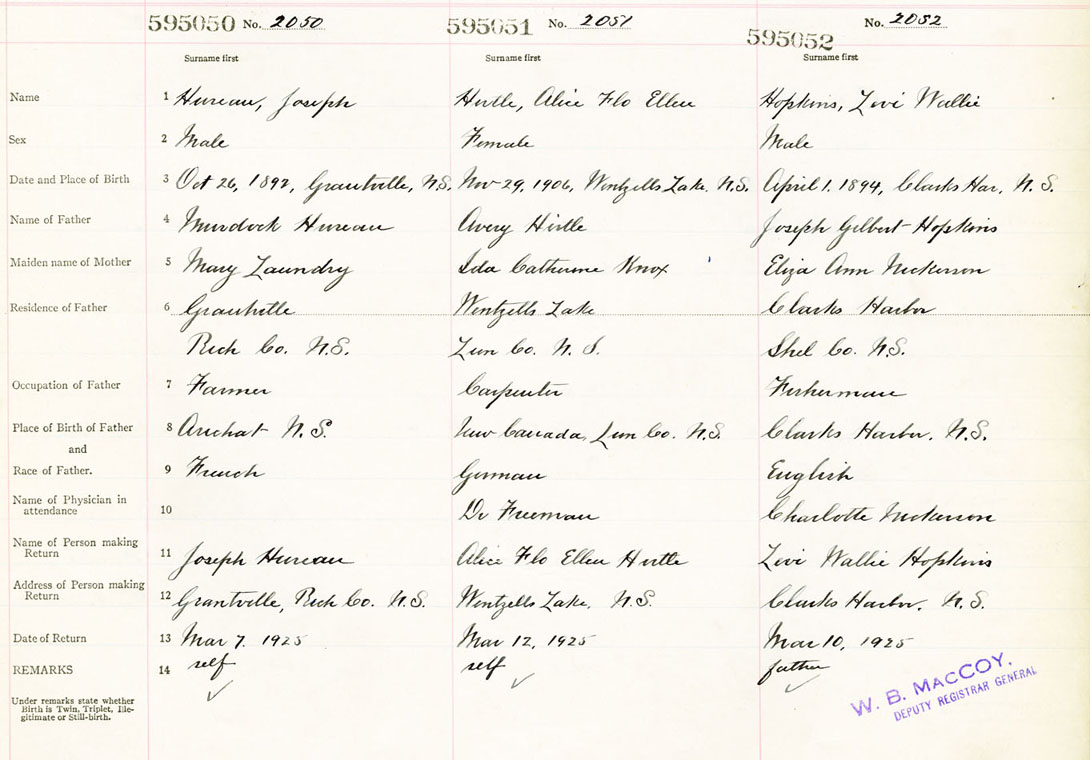 595050 No. 2050 595051 No. 2051 595052 No. 2052
Surname first Surname first Surname first
Name 1 Hureau, Joseph Hirtle, Alice Flo Ellen Hopkins, Levi Wallie
Sex 2 Male Female Male
Date and Place of Birth 3 Oct 26, 1892, Grantville, N.S. Nov 29, 1906, Wentzells Lake. N.S. April 1. 1894, Clarks Har, N.S.
Name of Father 4 Murdock Hureau Avery Hirtle Joseph Gilbert Hopkins
Maiden name of Mother 5 Mary Laundry Ida Catherine Knox Eliza Ann Nickerson
Residence of Father 6 Grantville Wentzells Lake Clarks Harbor
Rich Co. N.S. Lun Co. N.S. Shel Co. N.S.
Occupation of Father 7 Farmer Carpenter Fisherman
Place of Birth of Father 8 Arichat N.S. New Canada, Lun Co. N.S. Clarks Harbor, N.S.
and
Race of Father. 9 French German English
Name of Physician in
attendance 10 Dr Freeman Charlotte Nickerson
Name of Person making
Return 11 Joseph Hureau Alice Flo Ellen Hirtle Levi Wallie Hopkins
Address of Person making
Return 12 Grantville, Rich Co. N.S. Wentzells Lake, N.S. Clarks Harbor, N.S.
Date of Return 13 Mar 7. 1925 Mar 12, 1925 Mar 10, 1925
REMARKS 14 self self father
Under remarks state whether
Birth is Twin, Triplet, Ille-
gitimate or Still-birth.
W. B. MACCOY.
DEPUTY REGISTRAR GENERAL